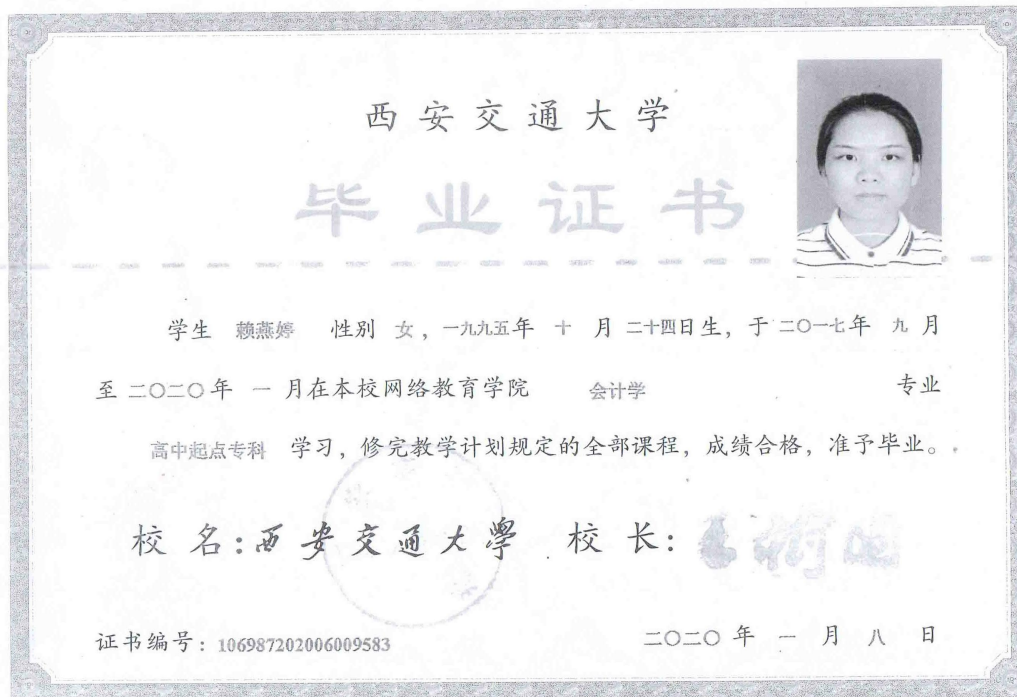 西安交通大学
毕业证书
学生 赖燕婷 性别 女，一九九五年 十 月 二十四日生，于二〇一七年 九 月
至二〇二〇年 一 月在本校网络教育学院 会计学 专业
高中起点专科 学习，修完教学计划规定的全部课程，成绩合格，准予毕业。
校 名：西安交通大學 校 长：
证书编号：106987202006009583 二〇二〇年 一 月 八 日